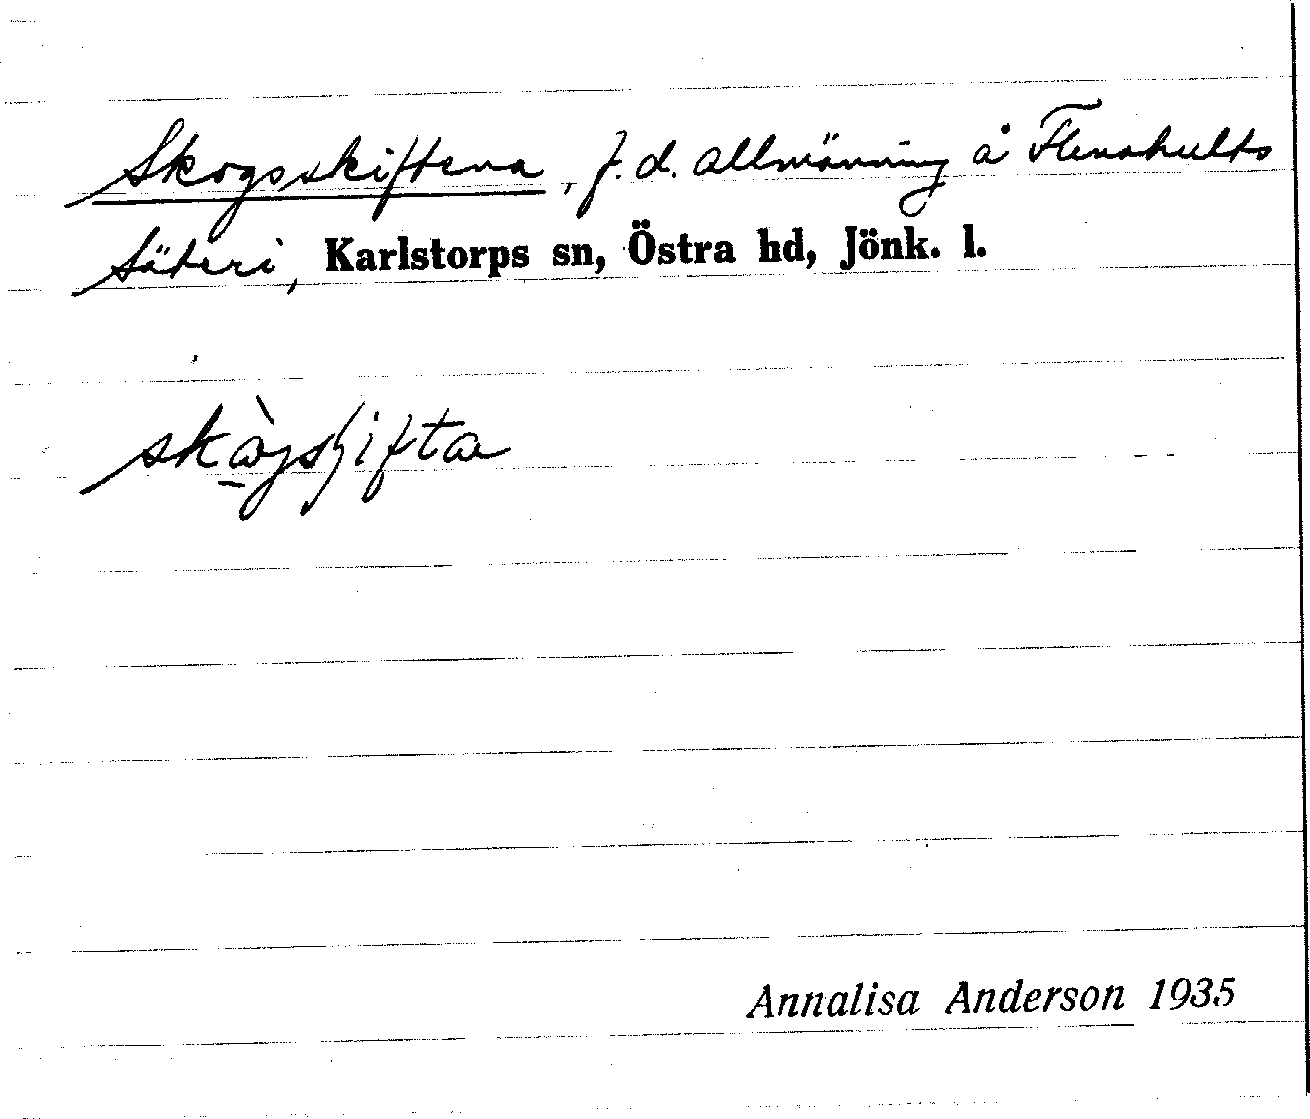 Skogsskiftena, f.d. allmänning å Flenshults
säteri, Karlstorps sn, Östra hd, Jönk. l.
skògsʃifta
Annalisa Anderson 1935